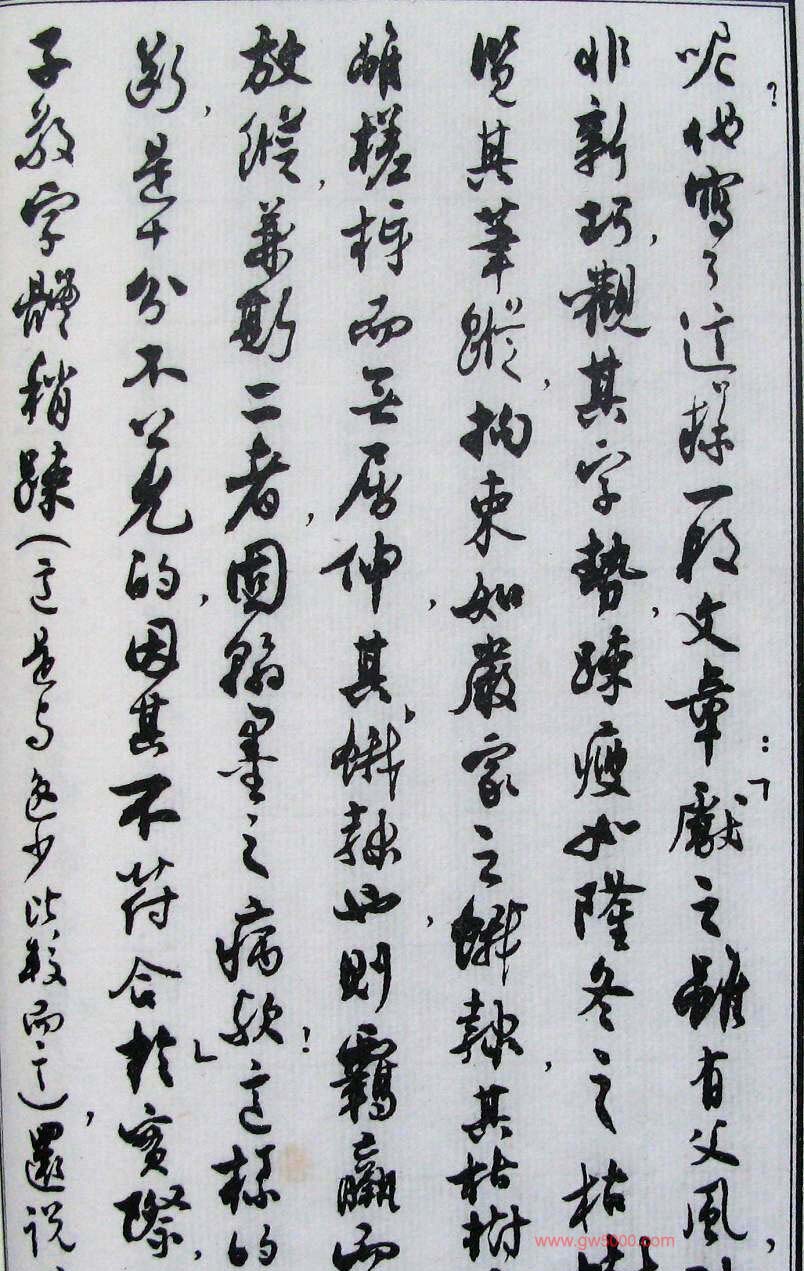 呢?他寫了這樣一段文章:「獻之雖有父風,
非新巧,觀其字勢,疎瘦如隆冬之枯
覽其筆蹤,拘束如嚴家之餓隸,其枯樹
雖槎枿而無屈伸,其餓隸也,則羈羸而
放縱,兼斯二者,固翰墨之病歟?」這樣的
斷,是十分不公允的,因其不符合於實際,
子敬字體稍疎(這是与逸少比較而言),還说
www.gw5000.com